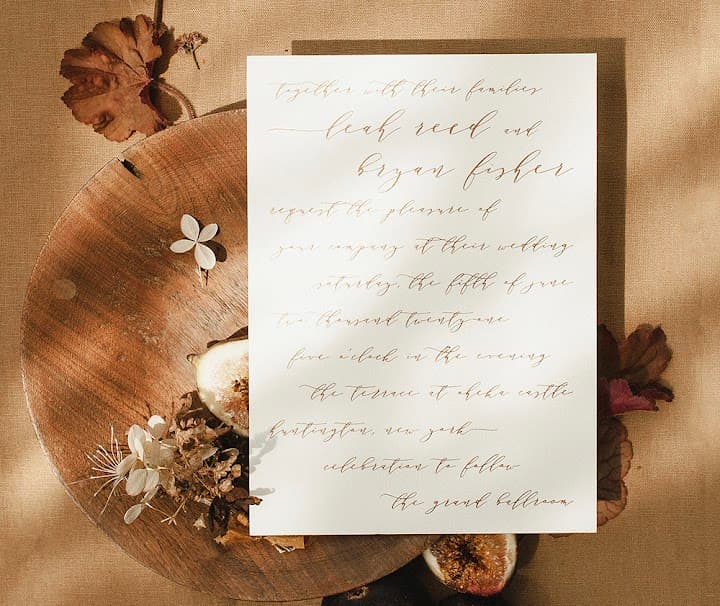 together with their families
leah reed and
bryan fisher
request the pleasure of
your company at their wedding
saturday, the fifth of june
two thousand twenty-one
five o'clock in the evening
the terrace at oheka castle
huntington, new york
celebration to follow
the grand ballroom